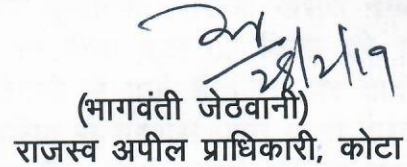 28/2/19
(भागवंती जेठवानी)
राजस्व अपील प्राधिकारी, कोटा